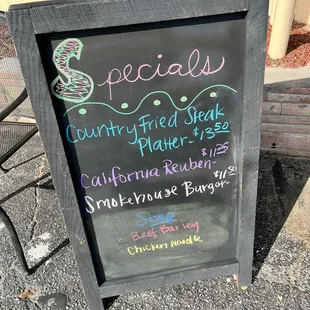 Specials
Country Fried Steak
Platter - $13.50
$11.25
California Reuben -
Smokehouse Burger - $11.50
Soup
Beef Barley
Chicken Noodle